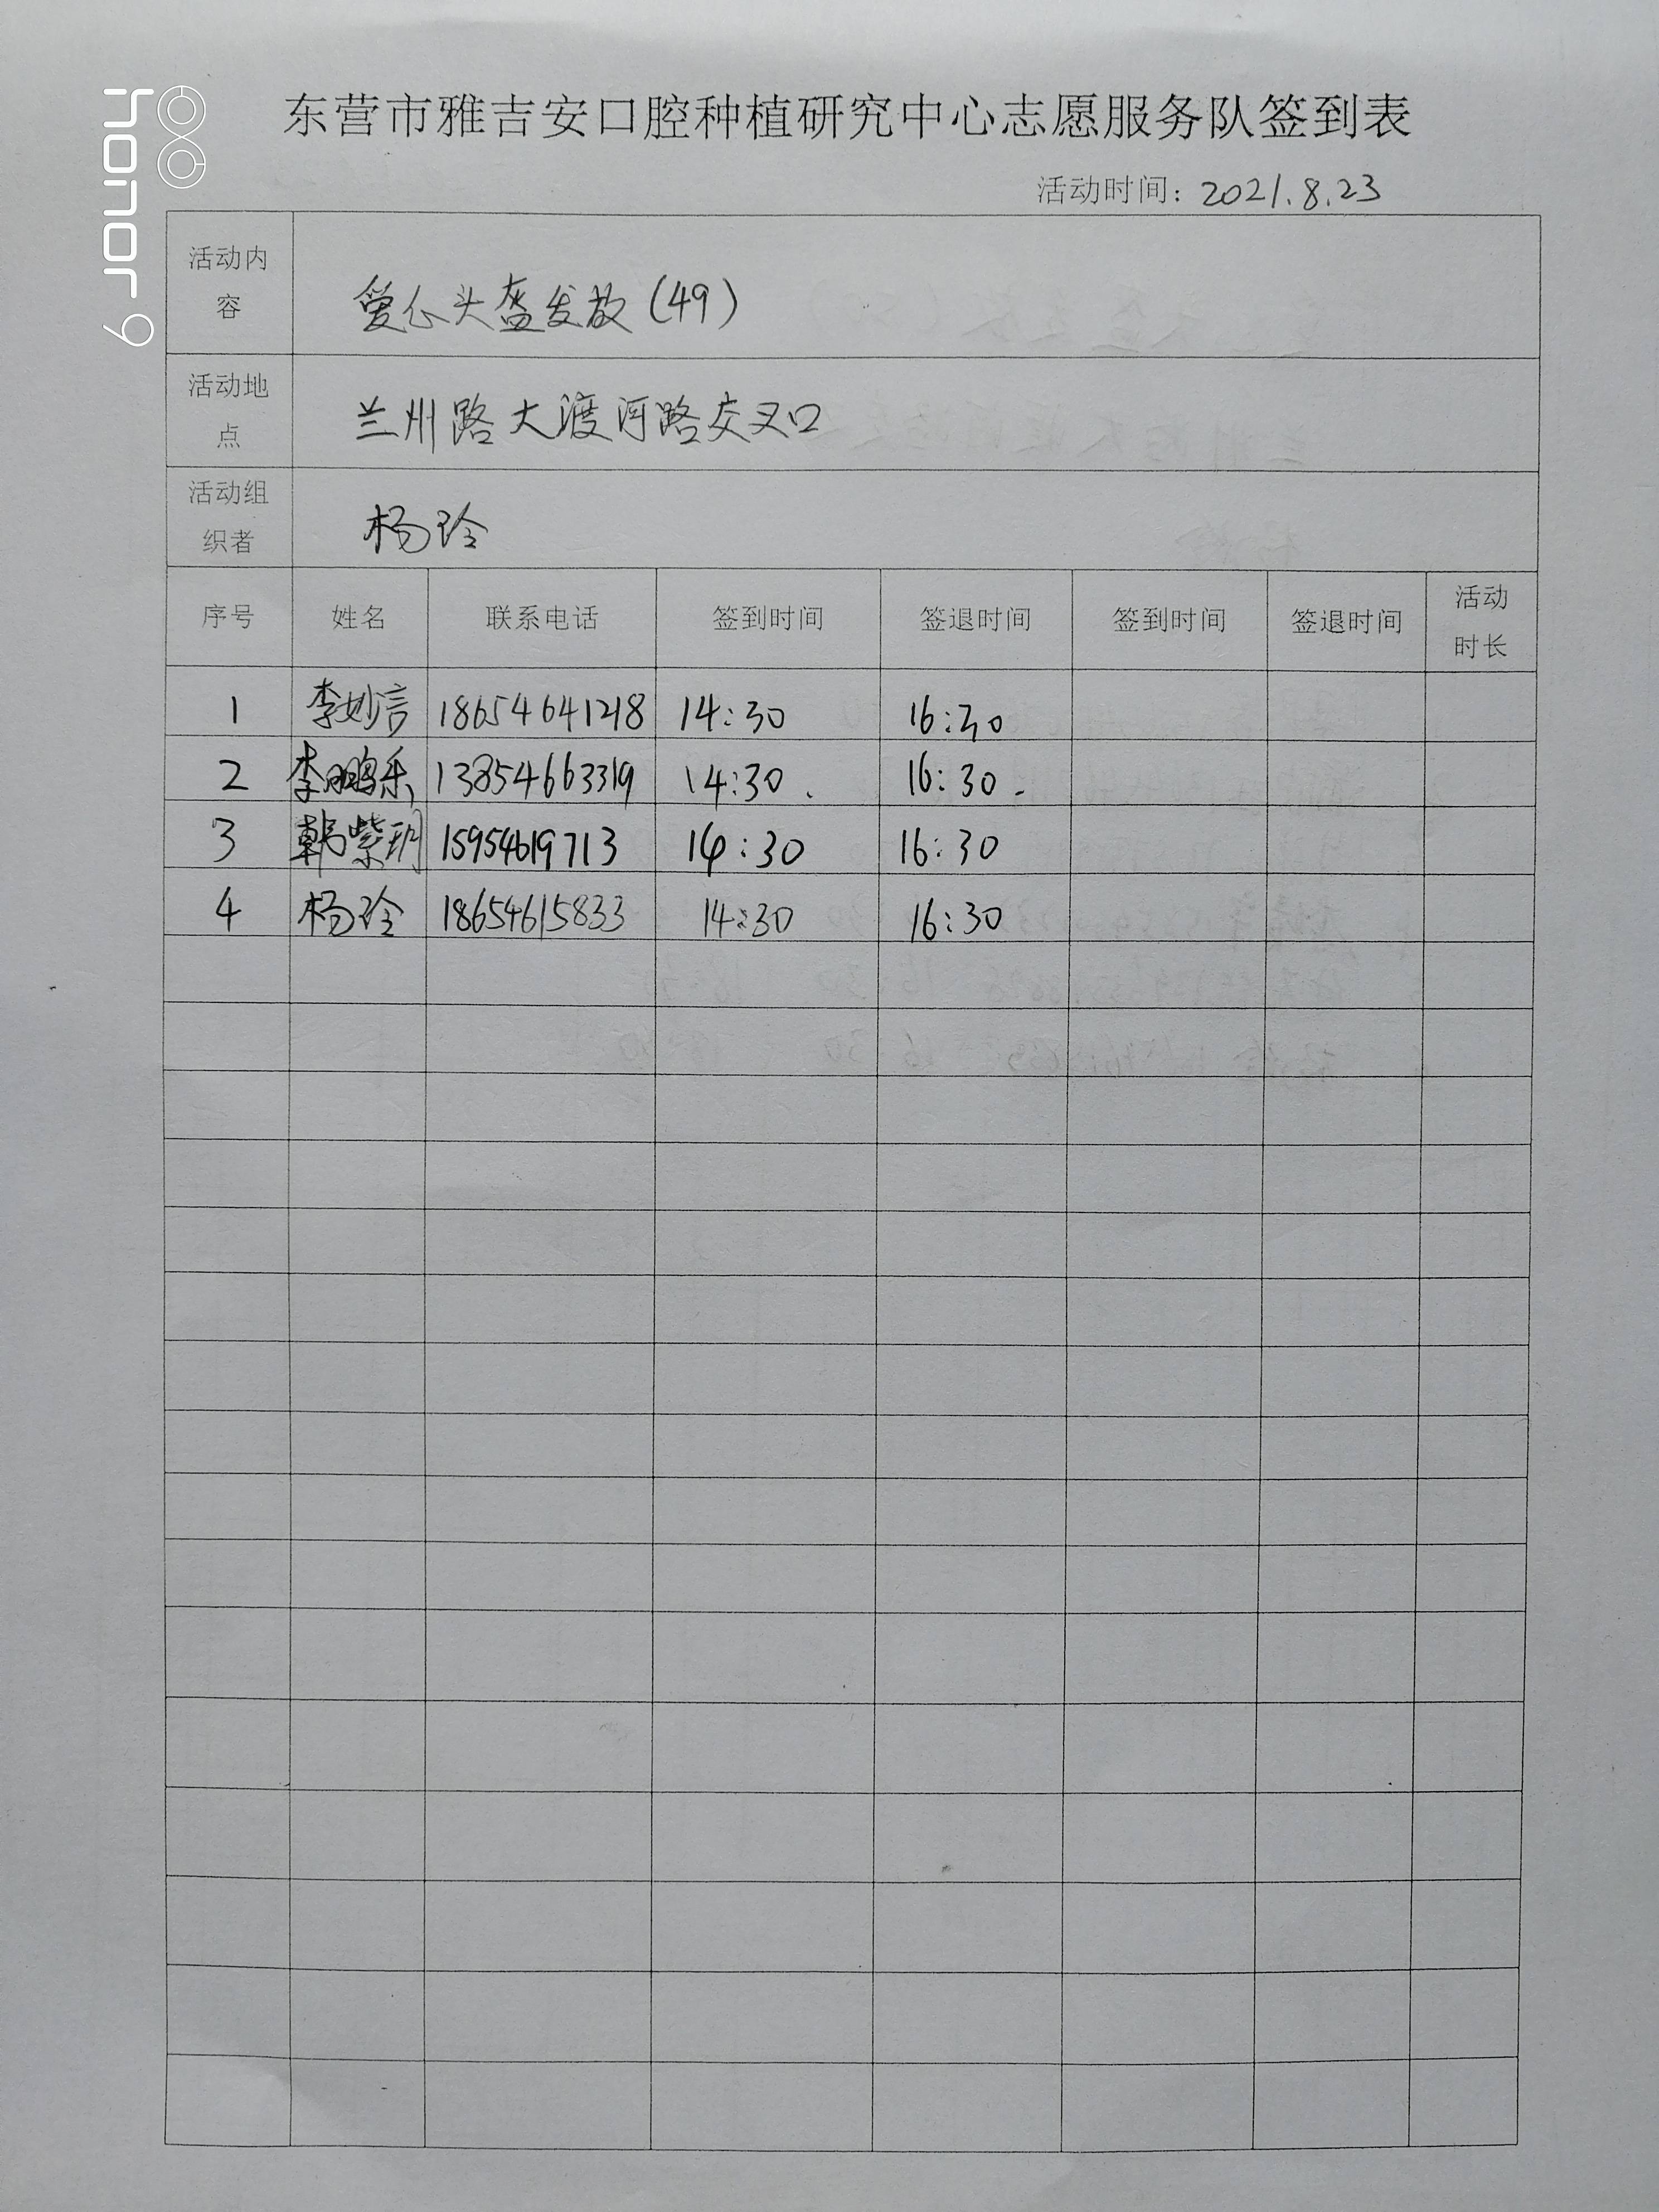 honor 9
东营市雅吉安口腔种植研究中心志愿服务队签到表
活动时间：2021.8.23
活动内容 爱心头盔发放(49)
活动地点 兰州路大渡河路交叉口
活动组织者 杨玲
序号 姓名 联系电话 签到时间 签退时间 签到时间 签退时间 活动时长
1 李妙言 18654641218 14:30 16:30
2 李鹏乐 13854663319 14:30. 16:30.
3 韩紫玥 15954619713 14:30 16:30
4 杨玲 18654615833 14:30 16:30